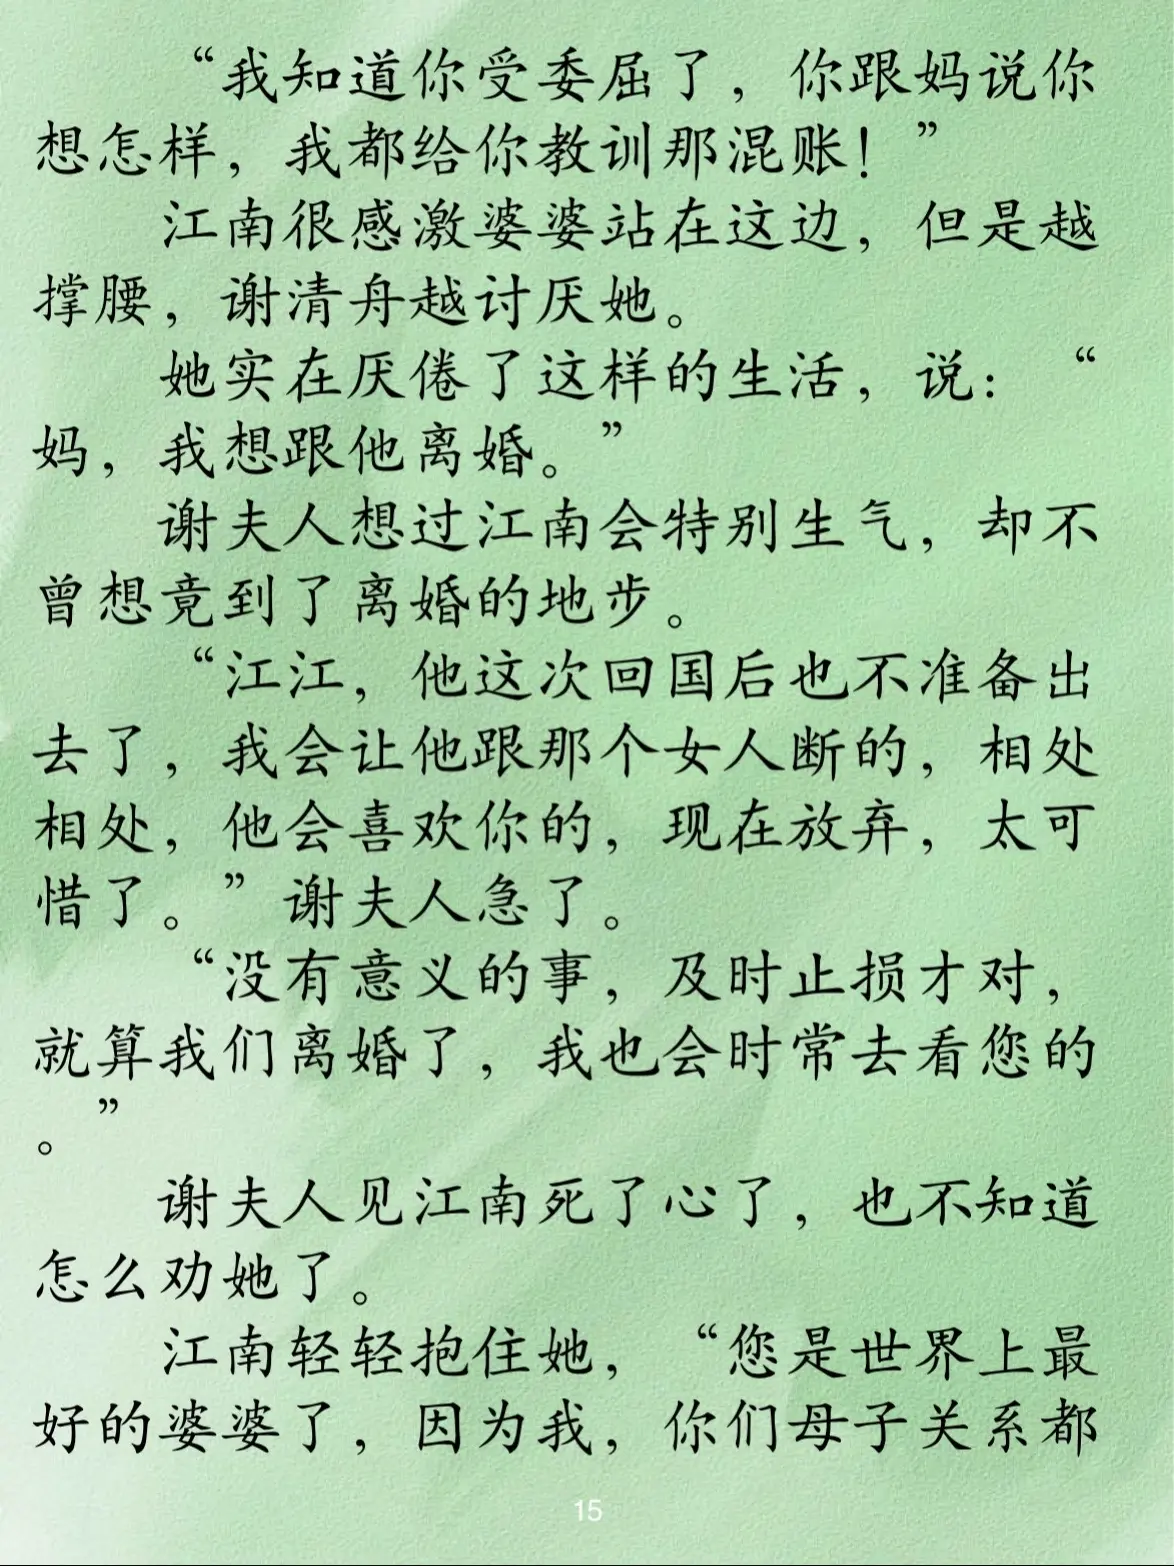 “我知道你受委屈了，你跟妈说你
想怎样，我都给你教训那混账！”
江南很感激婆婆站在这边，但是越
撑腰，谢清舟越讨厌她。
她实在厌倦了这样的生活，说：“
妈，我想跟他离婚。”
谢夫人想过江南会特别生气，却不
曾想竟到了离婚的地步。
“江江，他这次回国后也不准备出
去了，我会让他跟那个女人断的，相处
相处，他会喜欢你的，现在放弃，太可
惜了。”谢夫人急了。
“没有意义的事，及时止损才对，
就算我们离婚了，我也会时常去看您的
。”
谢夫人见江南死了心了，也不知道
怎么劝她了。
江南轻轻抱住她，“您是世界上最
好的婆婆了，因为我，你们母子关系都
15